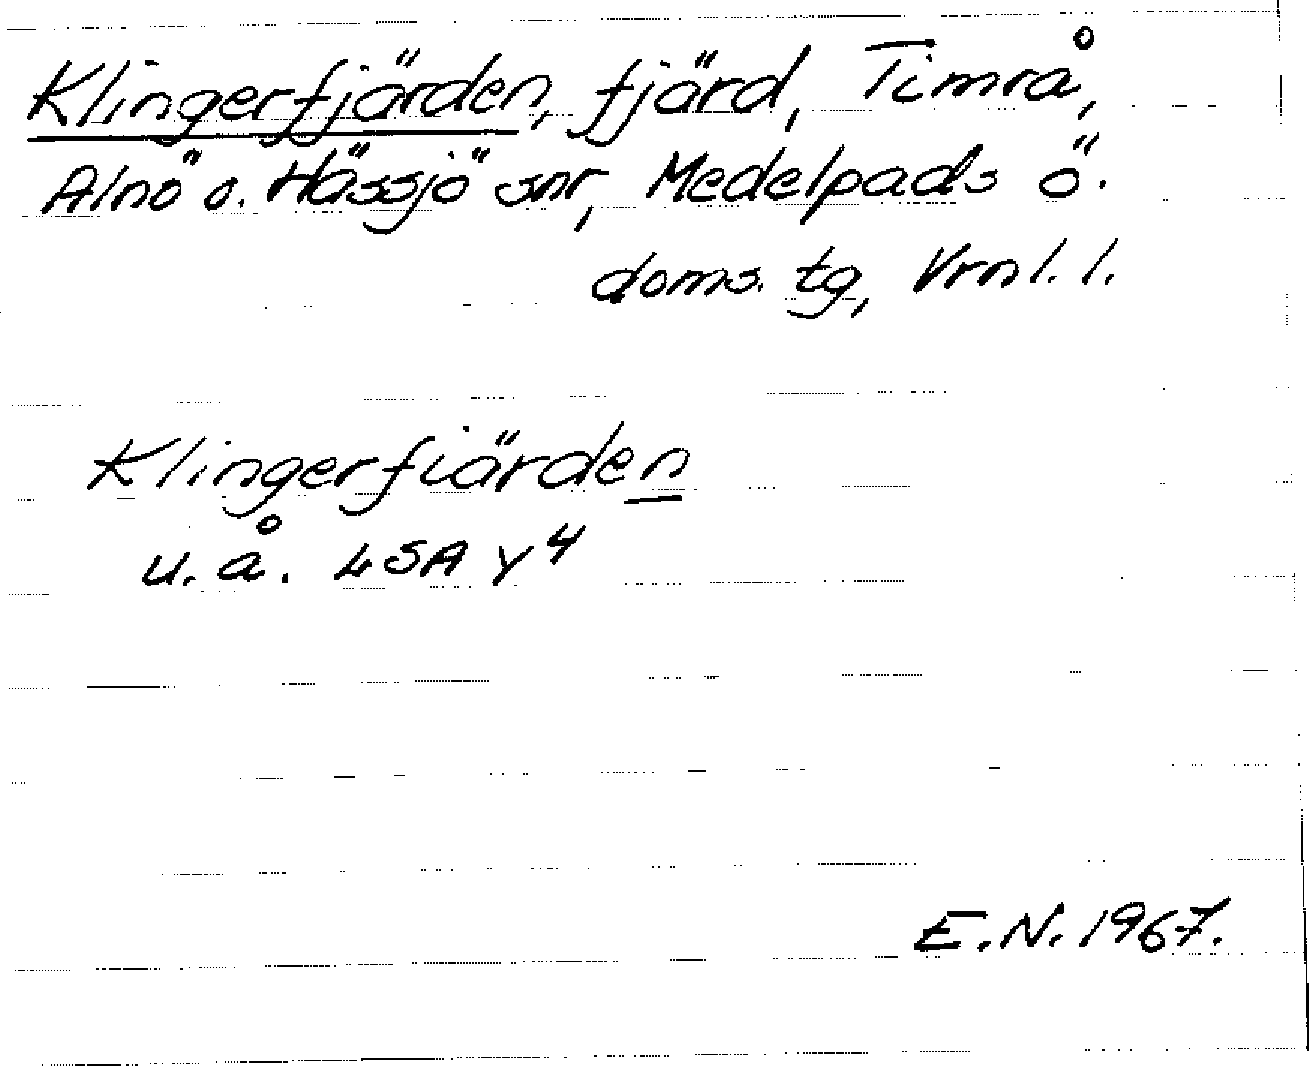 Klingerfjärden, fjärd, Timrå,
Alnö o. Hässjö snr, Medelpads ö.
doms. tg, Vrnl. l.
Klingerfiärden
u. å. LSA Y 4
E.N. 1967.